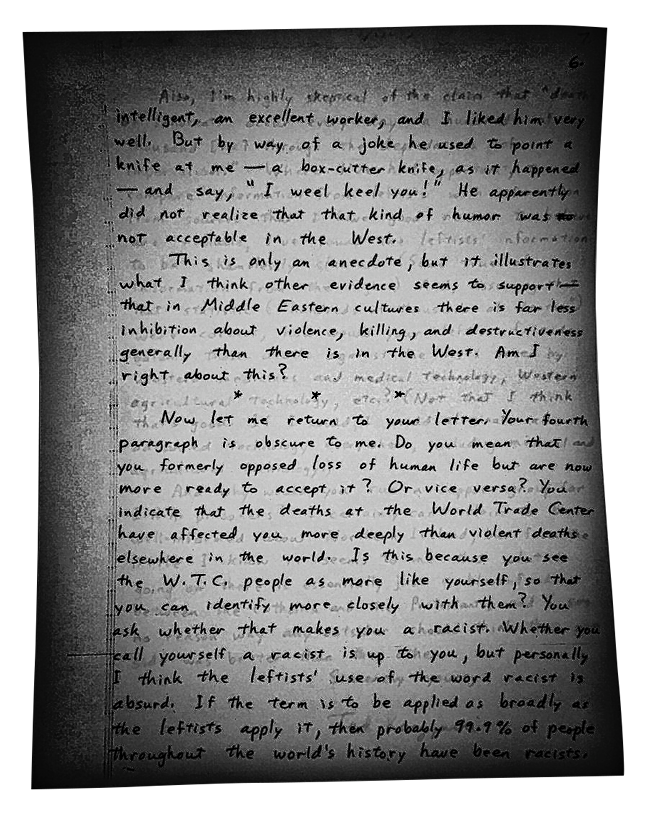 6.
Also, I'm highly skeptical of the claim that "death
intelligent, an excellent worker, and I liked him very
well. But by way of a joke he used to point a
knife at me — a box-cutter knife, as it happened
— and say, "I weel keel you!" He apparently
did not realize that that kind of humor was
not acceptable in the West. leftists' information
This is only an anecdote, but it illustrates
what I think other evidence seems to support —
that in Middle Eastern cultures there is far less
inhibition about violence, killing, and destructiveness
generally than there is in the West. Am I
right about this? and medical technology, Western
* * *
agricultural technology, etc.? Not that I think
Now let me return to your letter. Your fourth
paragraph is obscure to me. Do you mean that
you formerly opposed loss of human life but are now
more ready to accept it? Or vice versa? You
indicate that the deaths at the World Trade Center
have affected you more deeply than violent deaths
elsewhere in the world. Is this because you see
the W.T.C. people as more like yourself, so that
you can identify more closely with them? You
ask whether that makes you a racist. Whether you
call yourself a racist is up to you, but personally
I think the leftists' use of the word racist is
absurd. If the term is to be applied as broadly as
the leftists apply it, then probably 99.9% of people
throughout the world's history have been racists.